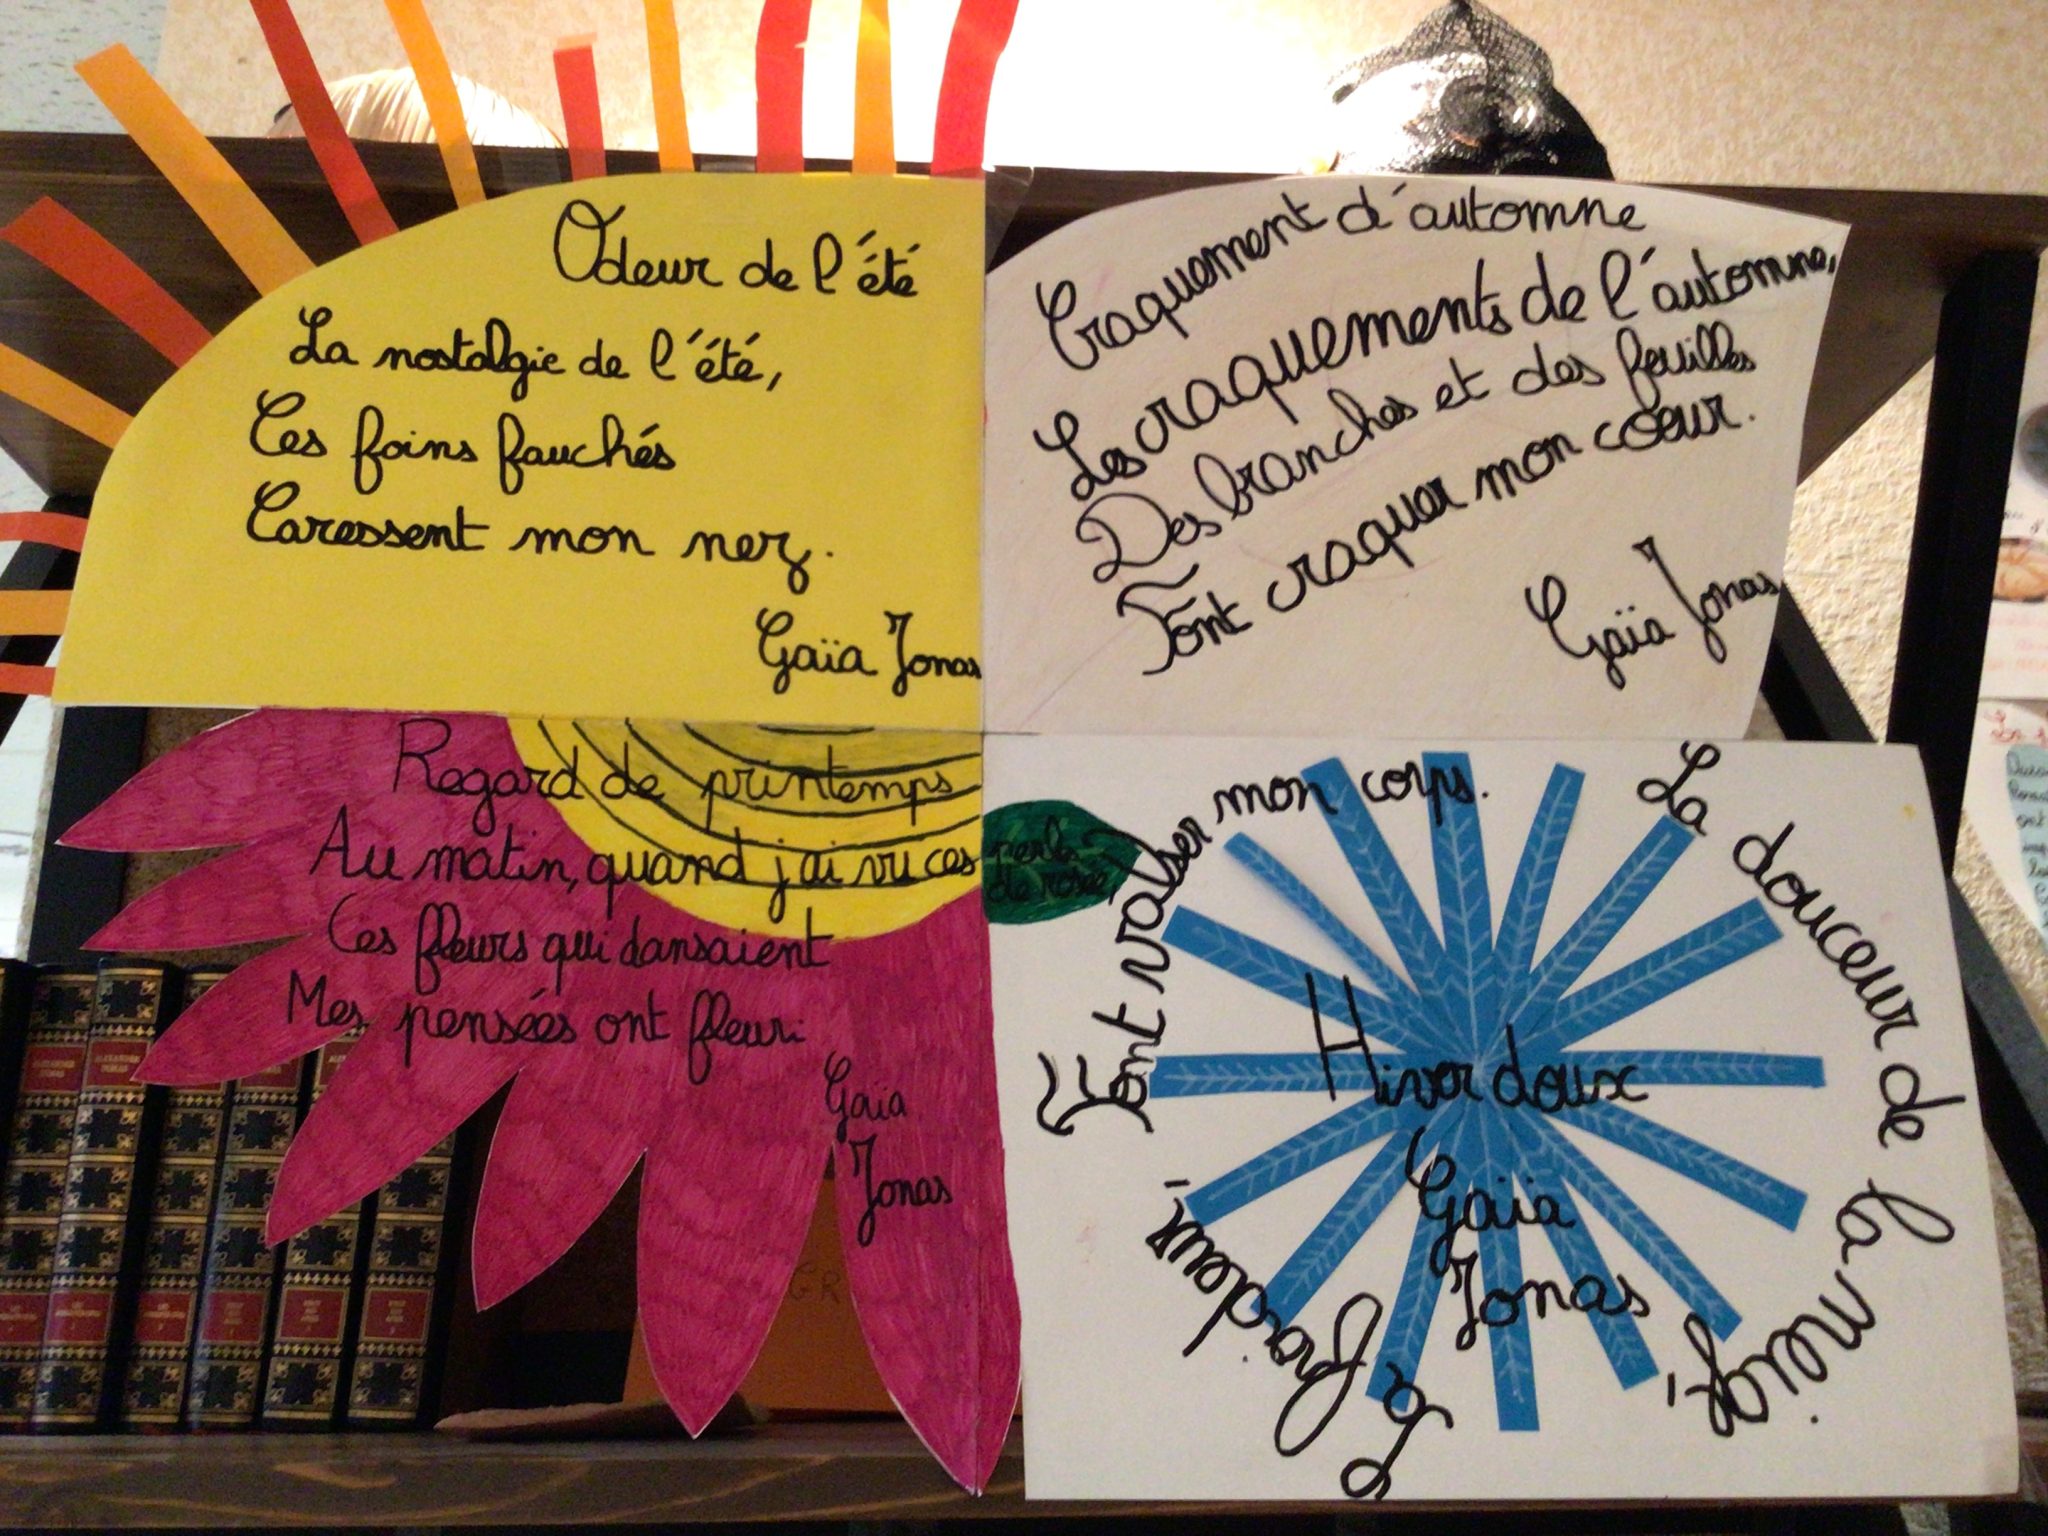 Odeur de l'été
La nostalgie de l'été,
Ces foins fauchés
Caressent mon nez.
Gaïa Jonas
Craquement d'automne
Les craquements de l'automne,
Des branches et des feuilles
Font craquer mon cœur.
Gaïa Jonas
Regard de printemps
Au matin, quand j'ai vu ces perles de rosée,
Ces fleurs qui dansaient
Mes pensées ont fleuri.
Gaïa
Jonas
Hiver doux
La douceur de la neige,
La froideur,
Font valser mon corps.
Gaïa
Jonas